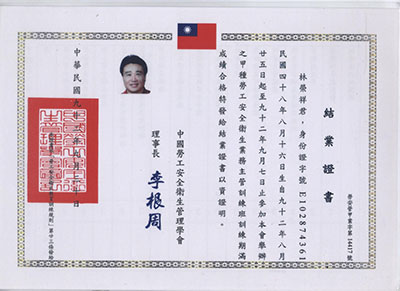 結業證書
林榮祥君，身份證字號E102874361
民國四十八年八月十六日生自九十二年八月
廿五日起至九十二年九月七日止參加本會舉辦
之甲種勞工安全衛生業務主管訓練班訓練期滿
成績合格特發給結業證書以資證明。
中國勞工安全衛生管理學會
理事長 李根周
中華民國九十
訓練規則」第廿三條發給